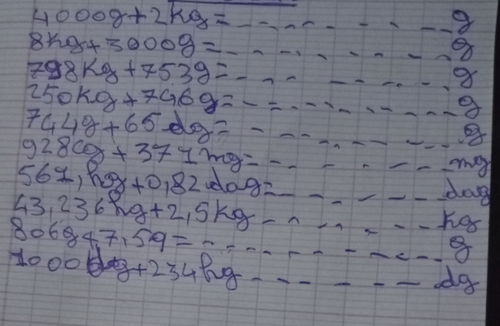 4000g+2kg=_ _ _ _ _ _ _ g
8kg+3000g=_ _ _ _ _ _ _ g
798kg+753g=_ _ _ _ _ _ g
250kg+746g=_ _ _ _ _ _ g
744g+65dg=_ _ _ _ _ _ g
928cg+371mg=_ _ _ _ _ mg
567,hg+0,82dag=_ _ _ _ _ dag
43,236hg+2,5kg_ _ _ _ _ _ kg
806g+7,5g=_ _ _ _ _ _ _ g
1000dg+234hg_ _ _ _ _ _ dg